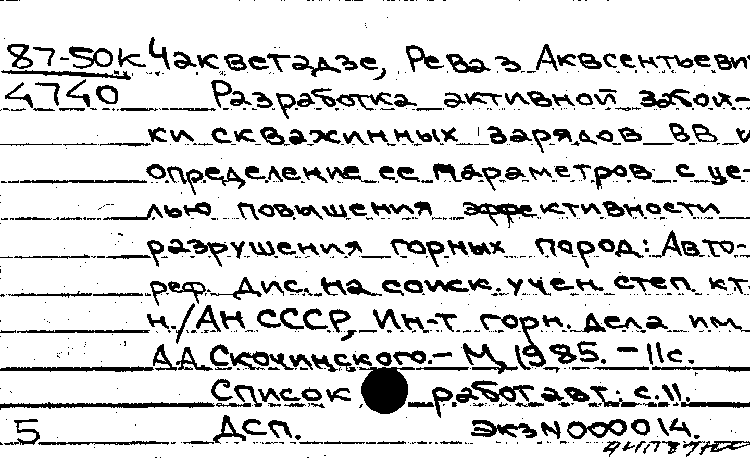 87-50к Чакветадзе, Реваз Аквсентьеви
4740 Разработка активной забой-
ки скважинных зарядов ВВ и
определение ее параметров с це-
лью повышения эффективности
разрушения горных пород: Авто-
реф. дис. на соиск. учен. степ. к.т.
н./АН СССР, Ин-т горн. дела им.
А.А. Скочинского.- М, 1985. - 11с.
Список работ авт: с.11.
5 ДСП. Экз N000014.